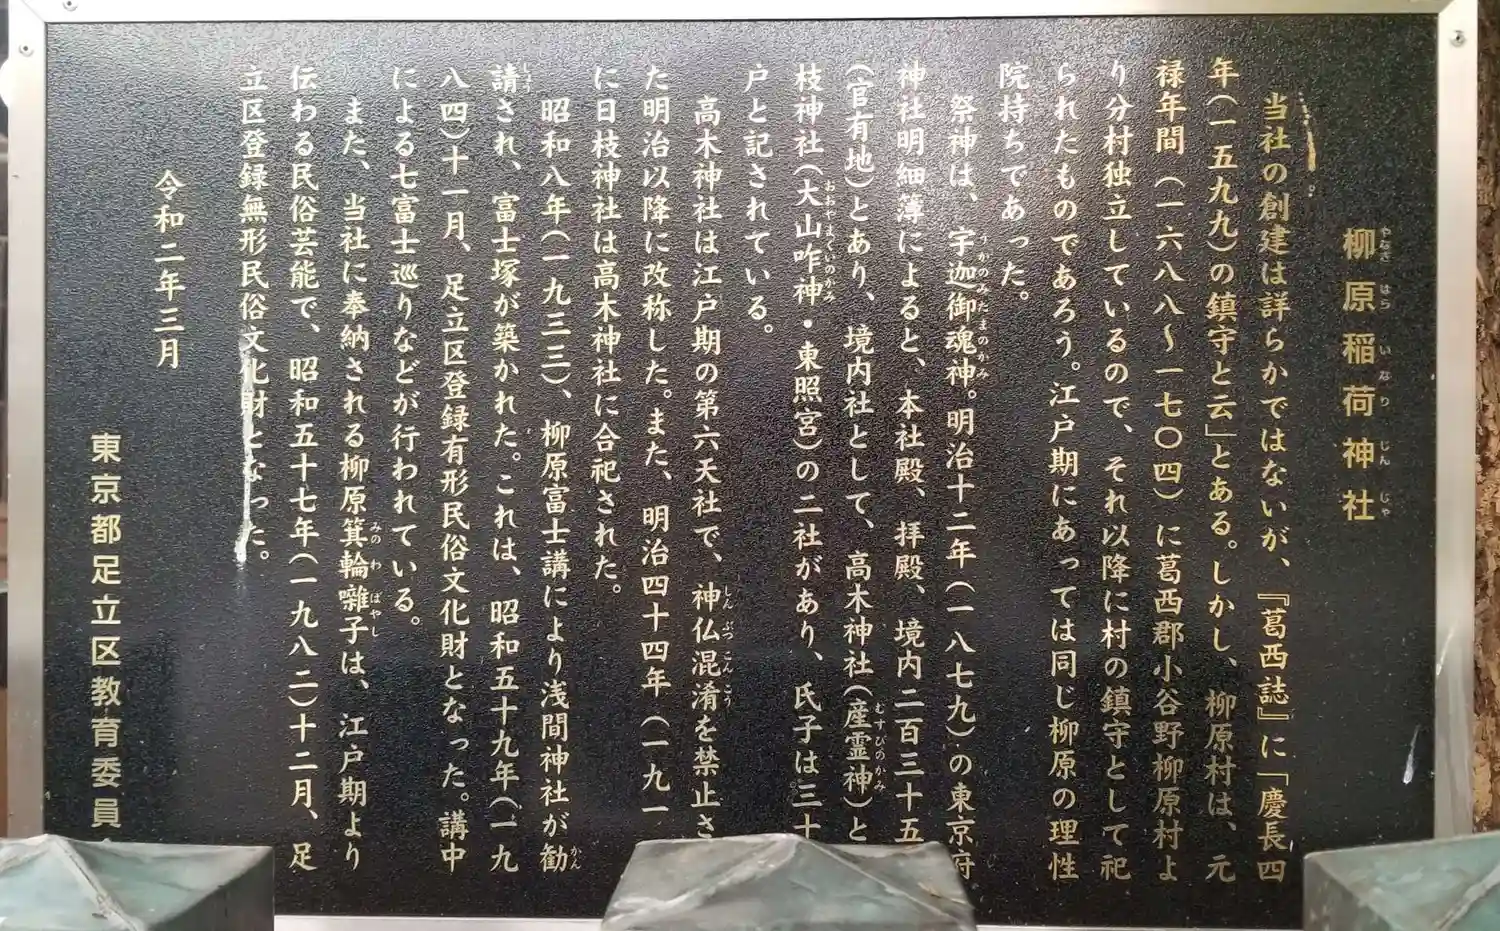 柳原稲荷神社
やなぎはらいなりじんじゃ
当社の創建は詳らかではないが、『葛西誌』に「慶長四
年(一五九九)の鎮守と云」とある。しかし、柳原村は、元
禄年間(一六八八～一七〇四)に葛西郡小谷野柳原村よ
り分村独立しているので、それ以降に村の鎮守として祀
られたものであろう。江戸期にあっては同じ柳原の理性
院持ちであった。
祭神は、宇迦御魂神。明治十二年(一八七九)の東京府
うかのみたまのかみ
神社明細簿によると、本社殿、拝殿、境内二百三十五
(官有地)とあり、境内社として、高木神社(産霊神)と
むすびのかみ
枝神社(大山咋神・東照宮)の二社があり、氏子は三十
おおやまくいのかみ
戸と記されている。
高木神社は江戸期の第六天社で、神仏混淆を禁止さ
しんぶつこんこう
た明治以降に改称した。また、明治四十四年(一九一
に日枝神社は高木神社に合祀された。
昭和八年(一九三三)、柳原富士講により浅間神社が勧
かん
請され、富士塚が築かれた。これは、昭和五十九年(一九
じょう
八四)十一月、足立区登録有形民俗文化財となった。講中
による七富士巡りなどが行われている。
また、当社に奉納される柳原箕輪囃子は、江戸期より
みのわばやし
伝わる民俗芸能で、昭和五十七年(一九八二)十二月、足
立区登録無形民俗文化財となった。
令和二年三月
東京都足立区教育委員